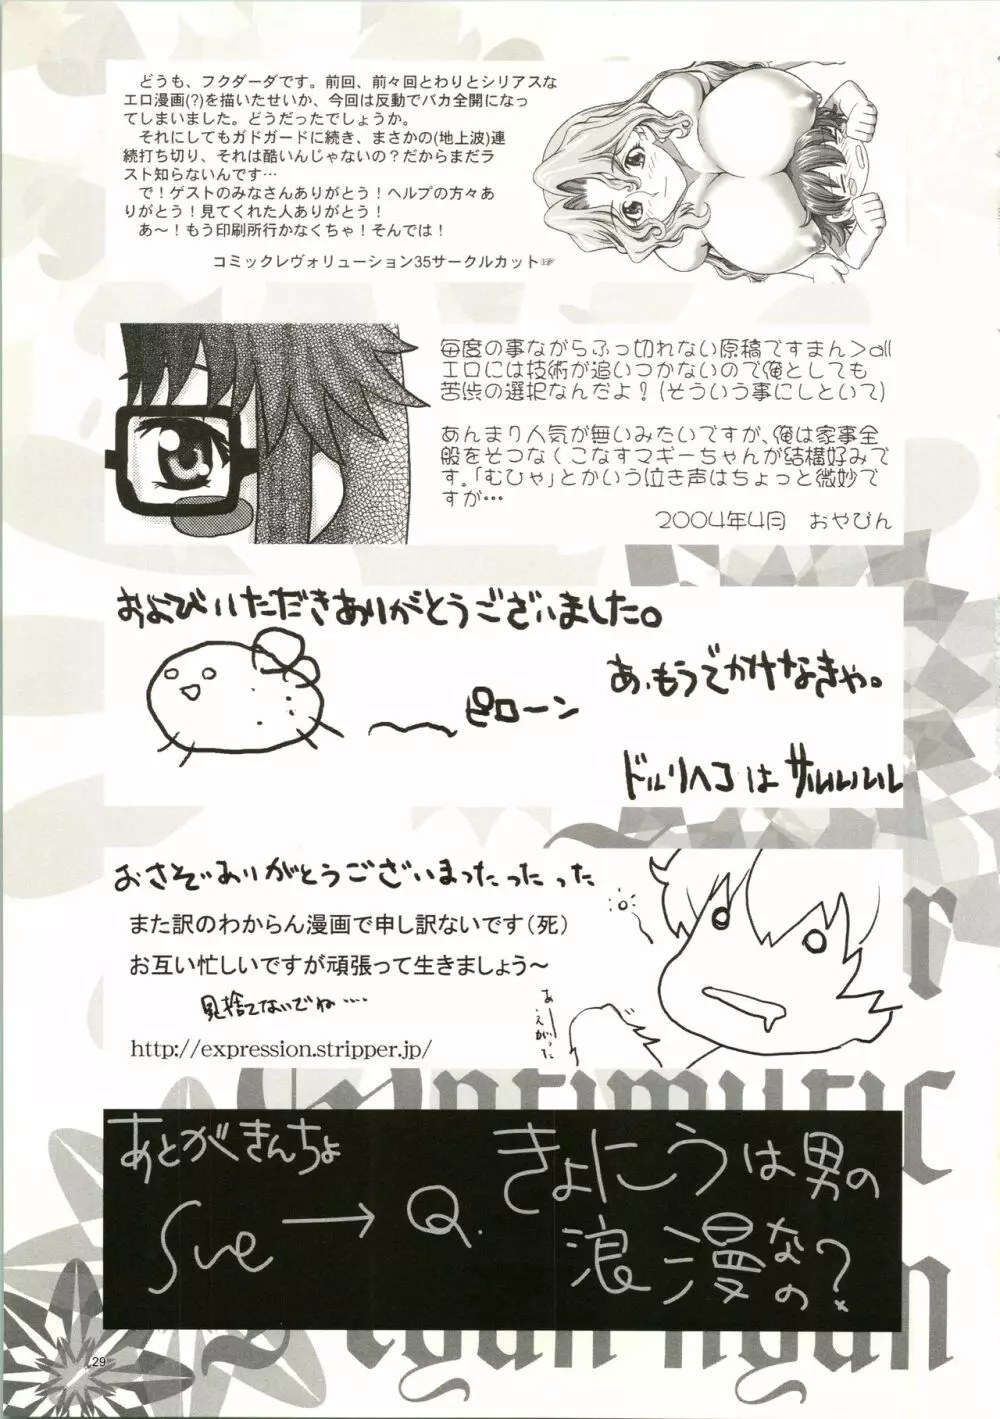 どうも、フクダーダです。前回、前々回とわりとシリアスな
エロ漫画(?)を描いたせいか、今回は反動でバカ全開になっ
てしまいました。どうだったでしょうか。
それにしてもガドガードに続き、まさかの(地上波)連
続打ち切り、それは酷いんじゃないの？だからまだラ
スト知らないんです…
で！ゲストのみなさんありがとう！ヘルプの方々あ
りがとう！見てくれた人ありがとう！
あ〜！もう印刷所行かなくちゃ！そんでは！
コミックレヴォリューション35サークルカット☞
毎度の事ながらふっ切れない原稿ですまん＞all
エロには技術が追いつかないので俺としても
苦渋の選択なんだよ！(そういう事にしといて)
あんまり人気が無いみたいですが、俺は家事全
般をそつなくこなすマギーちゃんが結構好みで
す。「むひゃ」とかいう泣き声はちょっと微妙で
すが…
2004年4月　おやびん
およびいただきありがとうございました。
あ、もうでかけなきゃ。
ピローン
ドルリヘコはサルルルルル
おさそいありがとうございまったったった
また訳のわからん漫画で申し訳ないです（死）
お互い忙しいですが頑張って生きましょう〜
見捨てないでね….
あーえがった
http://expression.stripper.jp/
あとがきんちょ
Sue→Q.
きょにうは男の
浪漫なの?
29